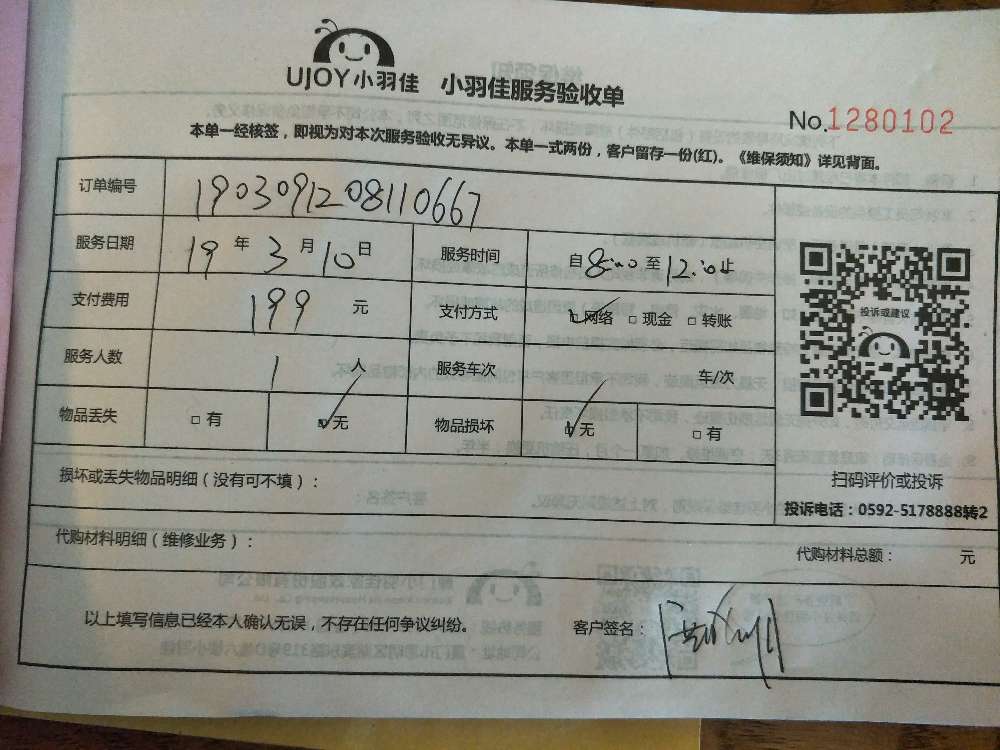 UJOY小羽佳 小羽佳服务验收单
No.1280102
本单一经核签，即视为对本次服务验收无异议。本单一式两份，客户留存一份(红)。《维保须知》详见背面。
订单编号 1903091208110667
服务日期 19 年 3 月 10 日 服务时间 自 8:00 至 12:00 止
支付费用 199 元 支付方式 □网络 □现金 □转账
服务人数 1 人 服务车次 车/次
物品丢失 □有 □无 物品损坏 □无 □有
损坏或丢失物品明细（没有可不填）：
投诉或建议
扫码评价或投诉
投诉电话：0592-5178888转2
代购材料明细（维修业务）： 代购材料总额： 元
以上填写信息已经本人确认无误，不存在任何争议纠纷。 客户签名：